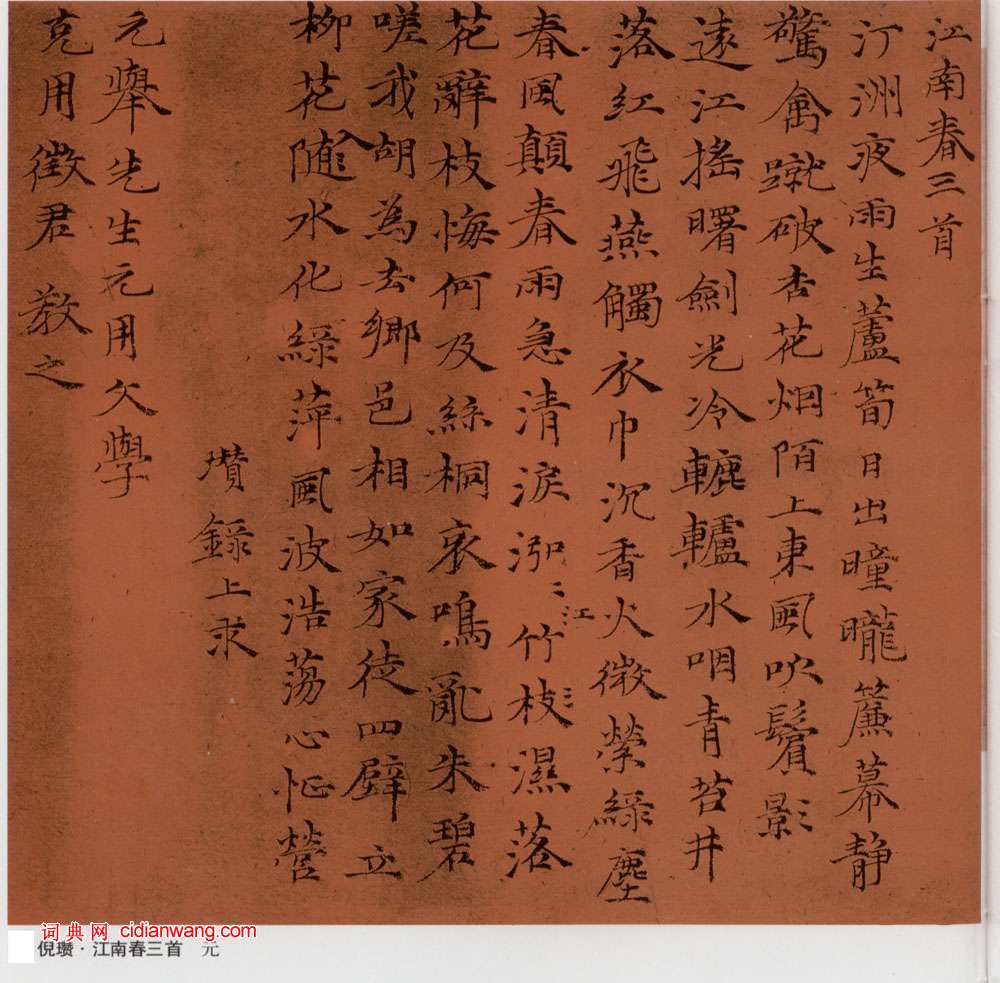 江南春三首
汀洲夜雨生蘆筍日出曈曨簾幕靜
驚禽蹴破杏花烟陌上東風吹鬢影
遠江搖曙劍光冷轆轤水咽青苔井
落紅飛燕觸衣巾沉香火微縈綠塵
春風顛春雨急清淚泓〻江竹枝〻濕落
花辭枝悔何及絲桐哀鳴亂朱碧
嗟我胡為去鄉邑相如家徒四壁立
柳花入隨水化綠萍風波浩蕩心怔營
瓚錄上求
元舉先生元用文學
克用徵君教之
词典网 cidianwang.com
倪瓒·江南春三首 元